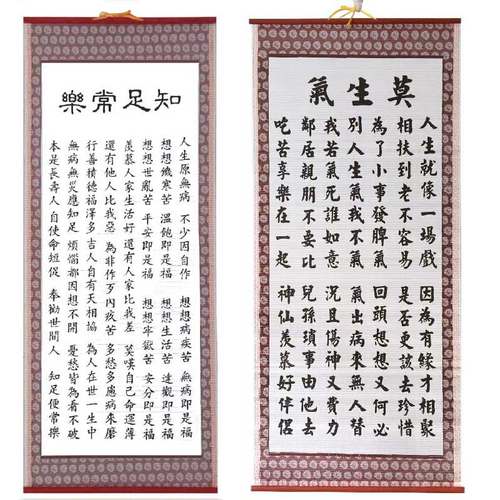 知足常樂
人生原無病 不少因自作 想想病疾苦 無病即是福
想想饑寒苦 溫飽即是福 想想生活苦 達觀即是福
想想世亂苦 平安即是福 想想牢獄苦 安分即是福
羨慕人家生活好 還有人家比我差 莫嘆自己命運薄
還有他人比我惡 為非作歹內疚苦 多愁多慮病來磨
行善積德福澤多 吉人自有天相協 為人在世一生中
無病無災應知足 煩惱都因想不開 憂愁皆為看不破
本是長壽人 自使命短促 奉勸世間人 知足便常樂
莫生氣
人生就像一場戲 因為有緣才相聚
相扶到老不容易 是否更該去珍惜
為了小事發脾氣 回頭想想又何必
別人生氣我不氣 氣出病來無人替
我若氣死誰如意 況且傷神又費力
鄰居親朋不要比 兒孫瑣事由他去
吃苦享樂在一起 神仙羨慕好伴侶